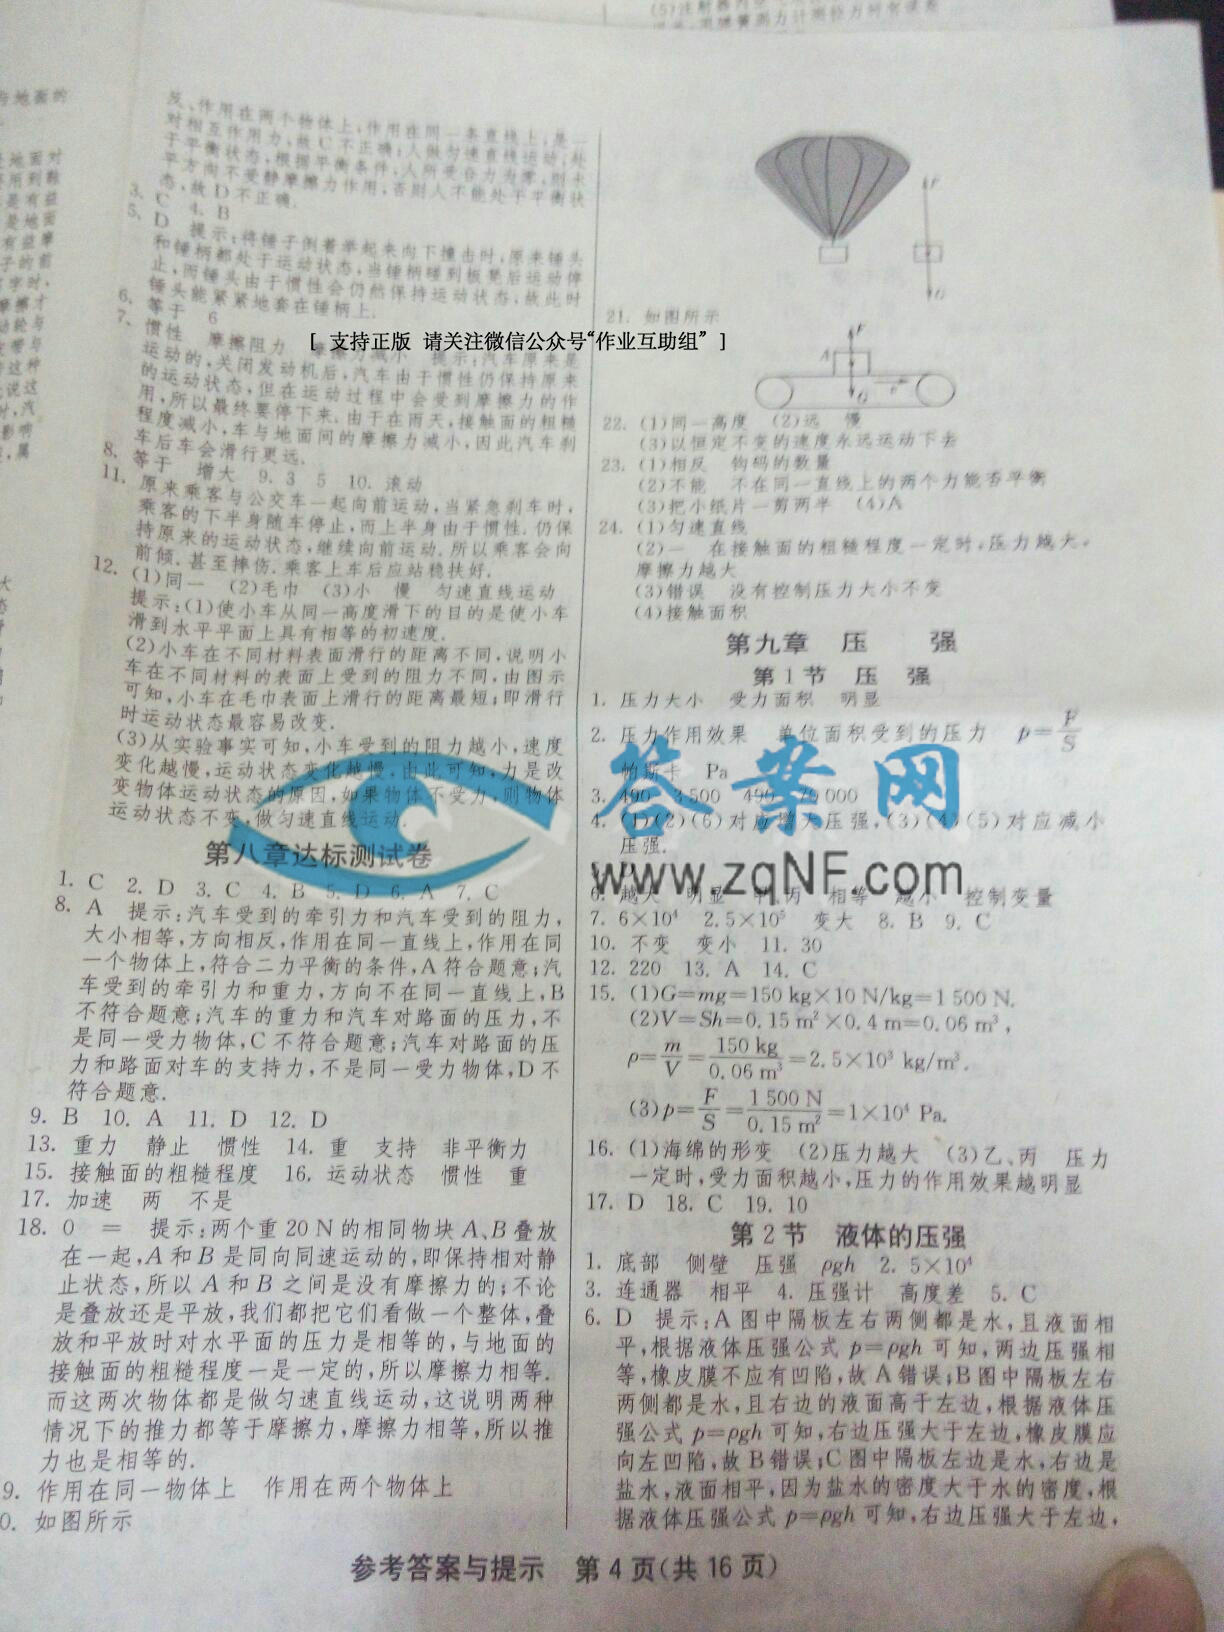 (5)注射器内
与地面的
反、作用在两个物体上,作用在同一条直线上,是一
对相互作用力,故C不正确;人做匀速直线运动,处
于平衡状态,根据平衡条件,人所受合力为零,则水
平方向不受静摩擦力作用,否则人不能处于平衡状
态,故D不正确.
3. C 4. B
5. D 提示:将锤子倒着举起来向下撞击时,原来锤头
和锤柄都处于运动状态,当锤柄碰到板凳后运动停
止,而锤头由于惯性会仍然保持运动状态,故此时
锤头能紧紧地套在锤柄上.
6. 等于 6
7. 惯性 摩擦阻力 摩擦力减小 提示:汽车原来是
运动的,关闭发动机后,汽车由于惯性仍保持原来
的运动状态,但在运动过程中会受到摩擦力的作
用,所以最终要停下来.由于在雨天,接触面的粗糙
程度减小,车与地面间的摩擦力减小,因此汽车刹
车后车会滑行更远.
8. 等于 增大 9. 3 5 10. 滚动
11. 原来乘客与公交车一起向前运动,当紧急刹车时,
乘客的下半身随车停止,而上半身由于惯性.仍保
持原来的运动状态,继续向前运动.所以乘客会向
前倾.甚至摔伤.乘客上车后应站稳扶好.
12. (1)同一 (2)毛巾 (3)小 慢 匀速直线运动
提示:(1)使小车从同一高度滑下的目的是使小车
滑到水平平面上具有相等的初速度.
(2)小车在不同材料表面滑行的距离不同,说明小
车在不同材料的表面上受到的阻力不同,由图示
可知,小车在毛巾表面上滑行的距离最短;即滑行
时运动状态最容易改变.
(3)从实验事实可知,小车受到的阻力越小,速度
变化越慢,运动状态变化越慢.由此可知,力是改
变物体运动状态的原因,如果物体不受力,则物体
运动状态不变,做匀速直线运动.
第八章达标测试卷
1. C 2. D 3. C 4. B 5. D 6. A 7. C
8. A 提示:汽车受到的牵引力和汽车受到的阻力,
大小相等,方向相反,作用在同一直线上,作用在同
一个物体上,符合二力平衡的条件,A符合题意;汽
车受到的牵引力和重力,方向不在同一直线上,B
不符合题意;汽车的重力和汽车对路面的压力,不
是同一受力物体,C不符合题意;汽车对路面的压
力和路面对车的支持力,不是同一受力物体,D不
符合题意.
9. B 10. A 11. D 12. D
13. 重力 静止 惯性 14. 重 支持 非平衡力
15. 接触面的粗糙程度 16. 运动状态 惯性 重
17. 加速 两 不是
18. 0 = 提示:两个重20 N的相同物块A、B叠放
在一起,A和B是同向同速运动的,即保持相对静
止状态,所以A和B之间是没有摩擦力的;不论
是叠放还是平放,我们都把它们看做一个整体,叠
放和平放时对水平面的压力是相等的,与地面的
接触面的粗糙程度一是一定的,所以摩擦力相等.
而这两次物体都是做匀速直线运动,这说明两种
情况下的推力都等于摩擦力,摩擦力相等,所以推
力也是相等的.
9. 作用在同一物体上 作用在两个物体上
0. 如图所示
F
G
21. 如图所示
F
A
G
v
[ 支持正版 请关注微信公众号“作业互助组” ]
22. (1)同一高度 (2)远 慢
(3)以恒定不变的速度永远运动下去
23. (1)相反 钩码的数量
(2)不能 不在同一直线上的两个力能否平衡
(3)把小纸片一剪两半 (4)A
24. (1)匀速直线
(2)一 在接触面的粗糙程度一定时,压力越大,
摩擦力越大
(3)错误 没有控制压力大小不变
(4)接触面积
第九章 压 强
第1节 压 强
1. 压力大小 受力面积 明显
2. 压力作用效果 单位面积受到的压力 p=F/S
帕斯卡 Pa
3. 490 3 500 490 000
4. (1)(2)(6)对应增大压强,(3)(4)(5)对应减小
压强.
答案网
www.zqNF.com
6. 越大 明显 甲、丙 相等 越小 控制变量
7. 6×10⁴ 2.5×10⁵ 变大 8. B 9. C
10. 不变 变小 11. 30
12. 220 13. A 14. C
15. (1)G=mg=150 kg×10 N/kg=1 500 N.
(2)V=Sh=0.15 m²×0.4 m=0.06 m³,
ρ=m/V=150 kg/0.06 m³=2.5×10³ kg/m³.
(3)p=F/S=1 500 N/0.15 m²=1×10⁴ Pa.
16. (1)海绵的形变 (2)压力越大 (3)乙、丙 压力
一定时,受力面积越小,压力的作用效果越明显
17. D 18. C 19. 10
第2节 液体的压强
1. 底部 侧壁 压强 ρgh 2. 5×10⁴
3. 连通器 相平 4. 压强计 高度差 5. C
6. D 提示:A图中隔板左右两侧都是水,且液面相
平,根据液体压强公式p=ρgh可知,两边压强相
等,橡皮膜不应有凹陷,故A错误;B图中隔板左右
两侧都是水,且右边的液面高于左边,根据液体压
强公式p=ρgh可知,右边压强大于左边,橡皮膜应
向左凹陷,故B错误;C图中隔板左边是水,右边是
盐水,液面相平,因为盐水的密度大于水的密度,根
据液体压强公式p=ρgh可知,右边压强大于左边,
参考答案与提示 第4页(共16页)